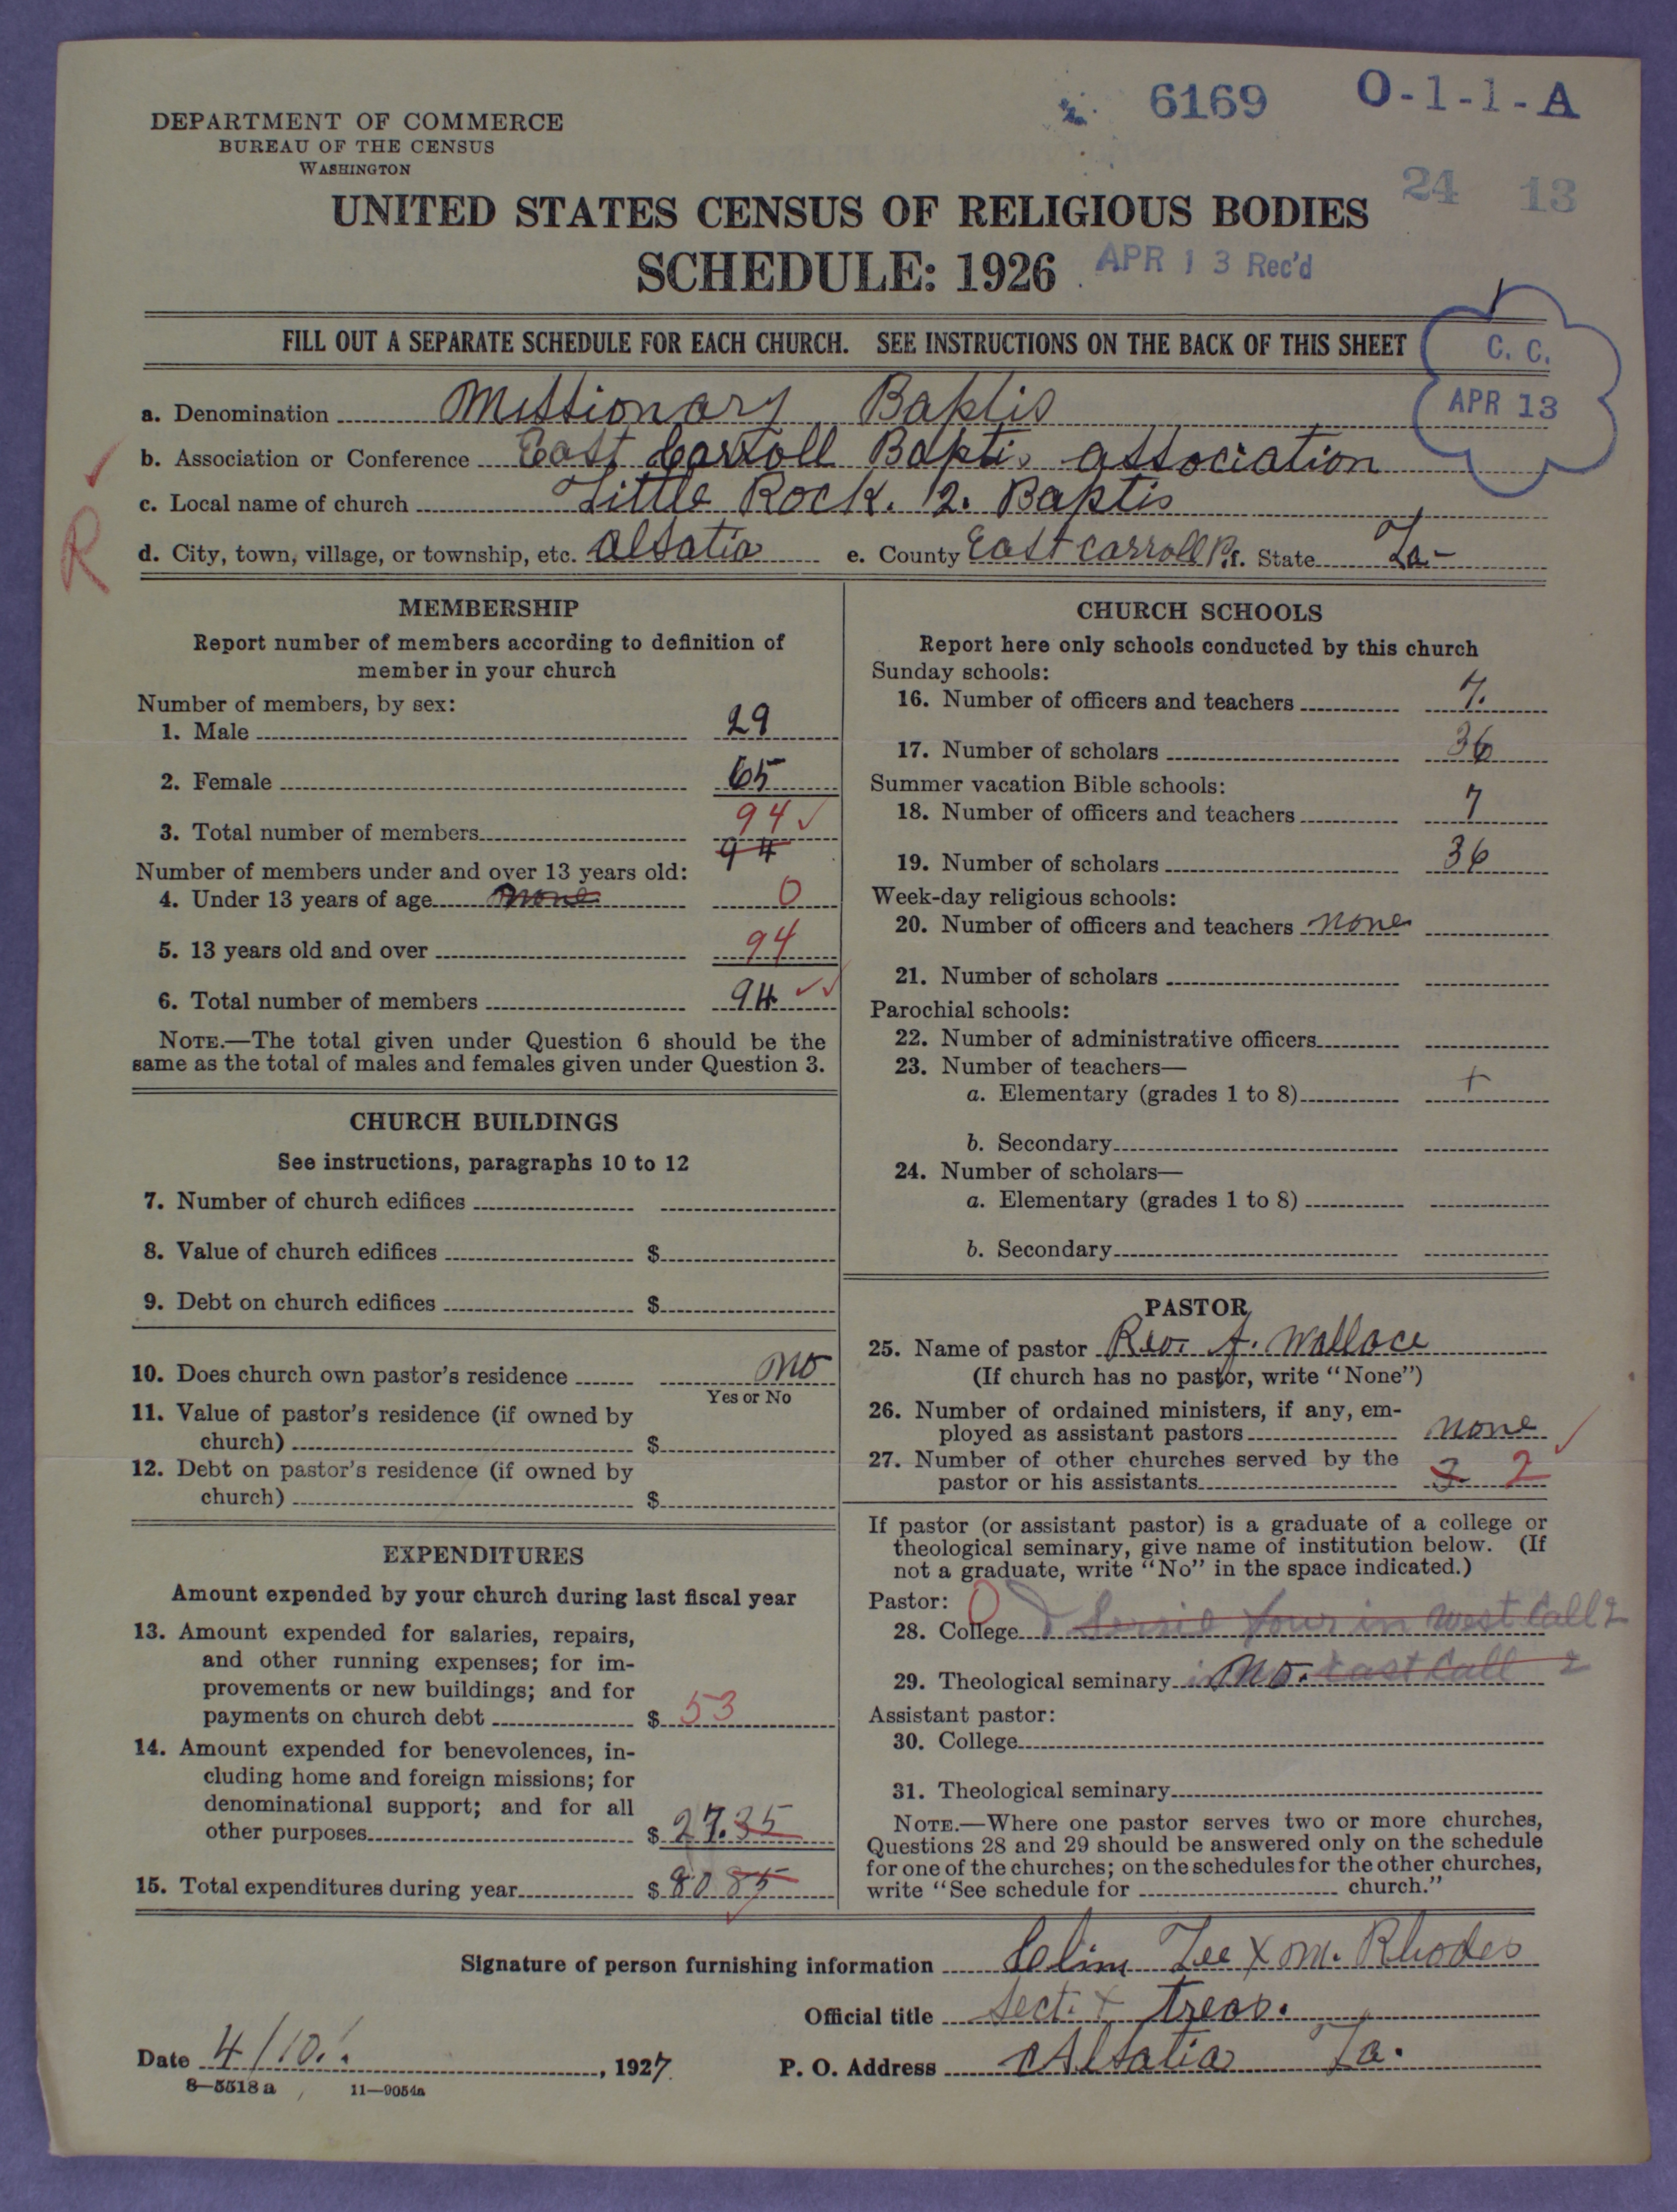 6169 O-1-1-A
DEPARTMENT OF COMMERCE
BUREAU OF THE CENSUS
WASHINGTON
24 13
UNITED STATES CENSUS OF RELIGIOUS BODIES
SCHEDULE: 1926 APR 13 Rec'd
FILL OUT A SEPARATE SCHEDULE FOR EACH CHURCH. SEE INSTRUCTIONS ON THE BACK OF THIS SHEET
C. C.
APR 13
a. Denomination Missionary Baptis
b. Association or Conference East Carroll Baptis association
c. Local name of church Little Rock. 2. Baptis
R
d. City, town, village, or township, etc. Alsatia e. County East Carroll Pr. State La-
MEMBERSHIP
Report number of members according to definition of
member in your church
Number of members, by sex:
1. Male 29
2. Female 65
3. Total number of members 94 ✓
94
Number of members under and over 13 years old:
4. Under 13 years of age none 0
5. 13 years old and over 94
6. Total number of members 94 ✓✓
NOTE.—The total given under Question 6 should be the
same as the total of males and females given under Question 3.
CHURCH BUILDINGS
See instructions, paragraphs 10 to 12
7. Number of church edifices
8. Value of church edifices $
9. Debt on church edifices $
10. Does church own pastor's residence no
Yes or No
11. Value of pastor's residence (if owned by
church) $
12. Debt on pastor's residence (if owned by
church) $
EXPENDITURES
Amount expended by your church during last fiscal year
13. Amount expended for salaries, repairs,
and other running expenses; for im-
provements or new buildings; and for
payments on church debt $ 53
14. Amount expended for benevolences, in-
cluding home and foreign missions; for
denominational support; and for all
other purposes $ 27.35
15. Total expenditures during year $ 80 85
CHURCH SCHOOLS
Report here only schools conducted by this church
Sunday schools:
16. Number of officers and teachers 7.
17. Number of scholars 36
Summer vacation Bible schools:
18. Number of officers and teachers 7
19. Number of scholars 36
Week-day religious schools:
20. Number of officers and teachers none
21. Number of scholars
Parochial schools:
22. Number of administrative officers
23. Number of teachers—
a. Elementary (grades 1 to 8) +
b. Secondary
24. Number of scholars—
a. Elementary (grades 1 to 8)
b. Secondary
PASTOR
25. Name of pastor Rev. Wallace
(If church has no pastor, write "None")
26. Number of ordained ministers, if any, em-
ployed as assistant pastors none ✓
27. Number of other churches served by the
pastor or his assistants 3 2
If pastor (or assistant pastor) is a graduate of a college or
theological seminary, give name of institution below. (If
not a graduate, write "No" in the space indicated.)
Pastor: 0
28. College four in West Call 2
29. Theological seminary in no. East Call 2
Assistant pastor:
30. College
31. Theological seminary
NOTE.—Where one pastor serves two or more churches,
Questions 28 and 29 should be answered only on the schedule
for one of the churches; on the schedules for the other churches,
write "See schedule for church."
Signature of person furnishing information Clim Lee X m. Rhodes
Official title Sect. + treas.
Date 4/10. , 1927 P. O. Address Alsatia La.
8—5518 a 11—9054a